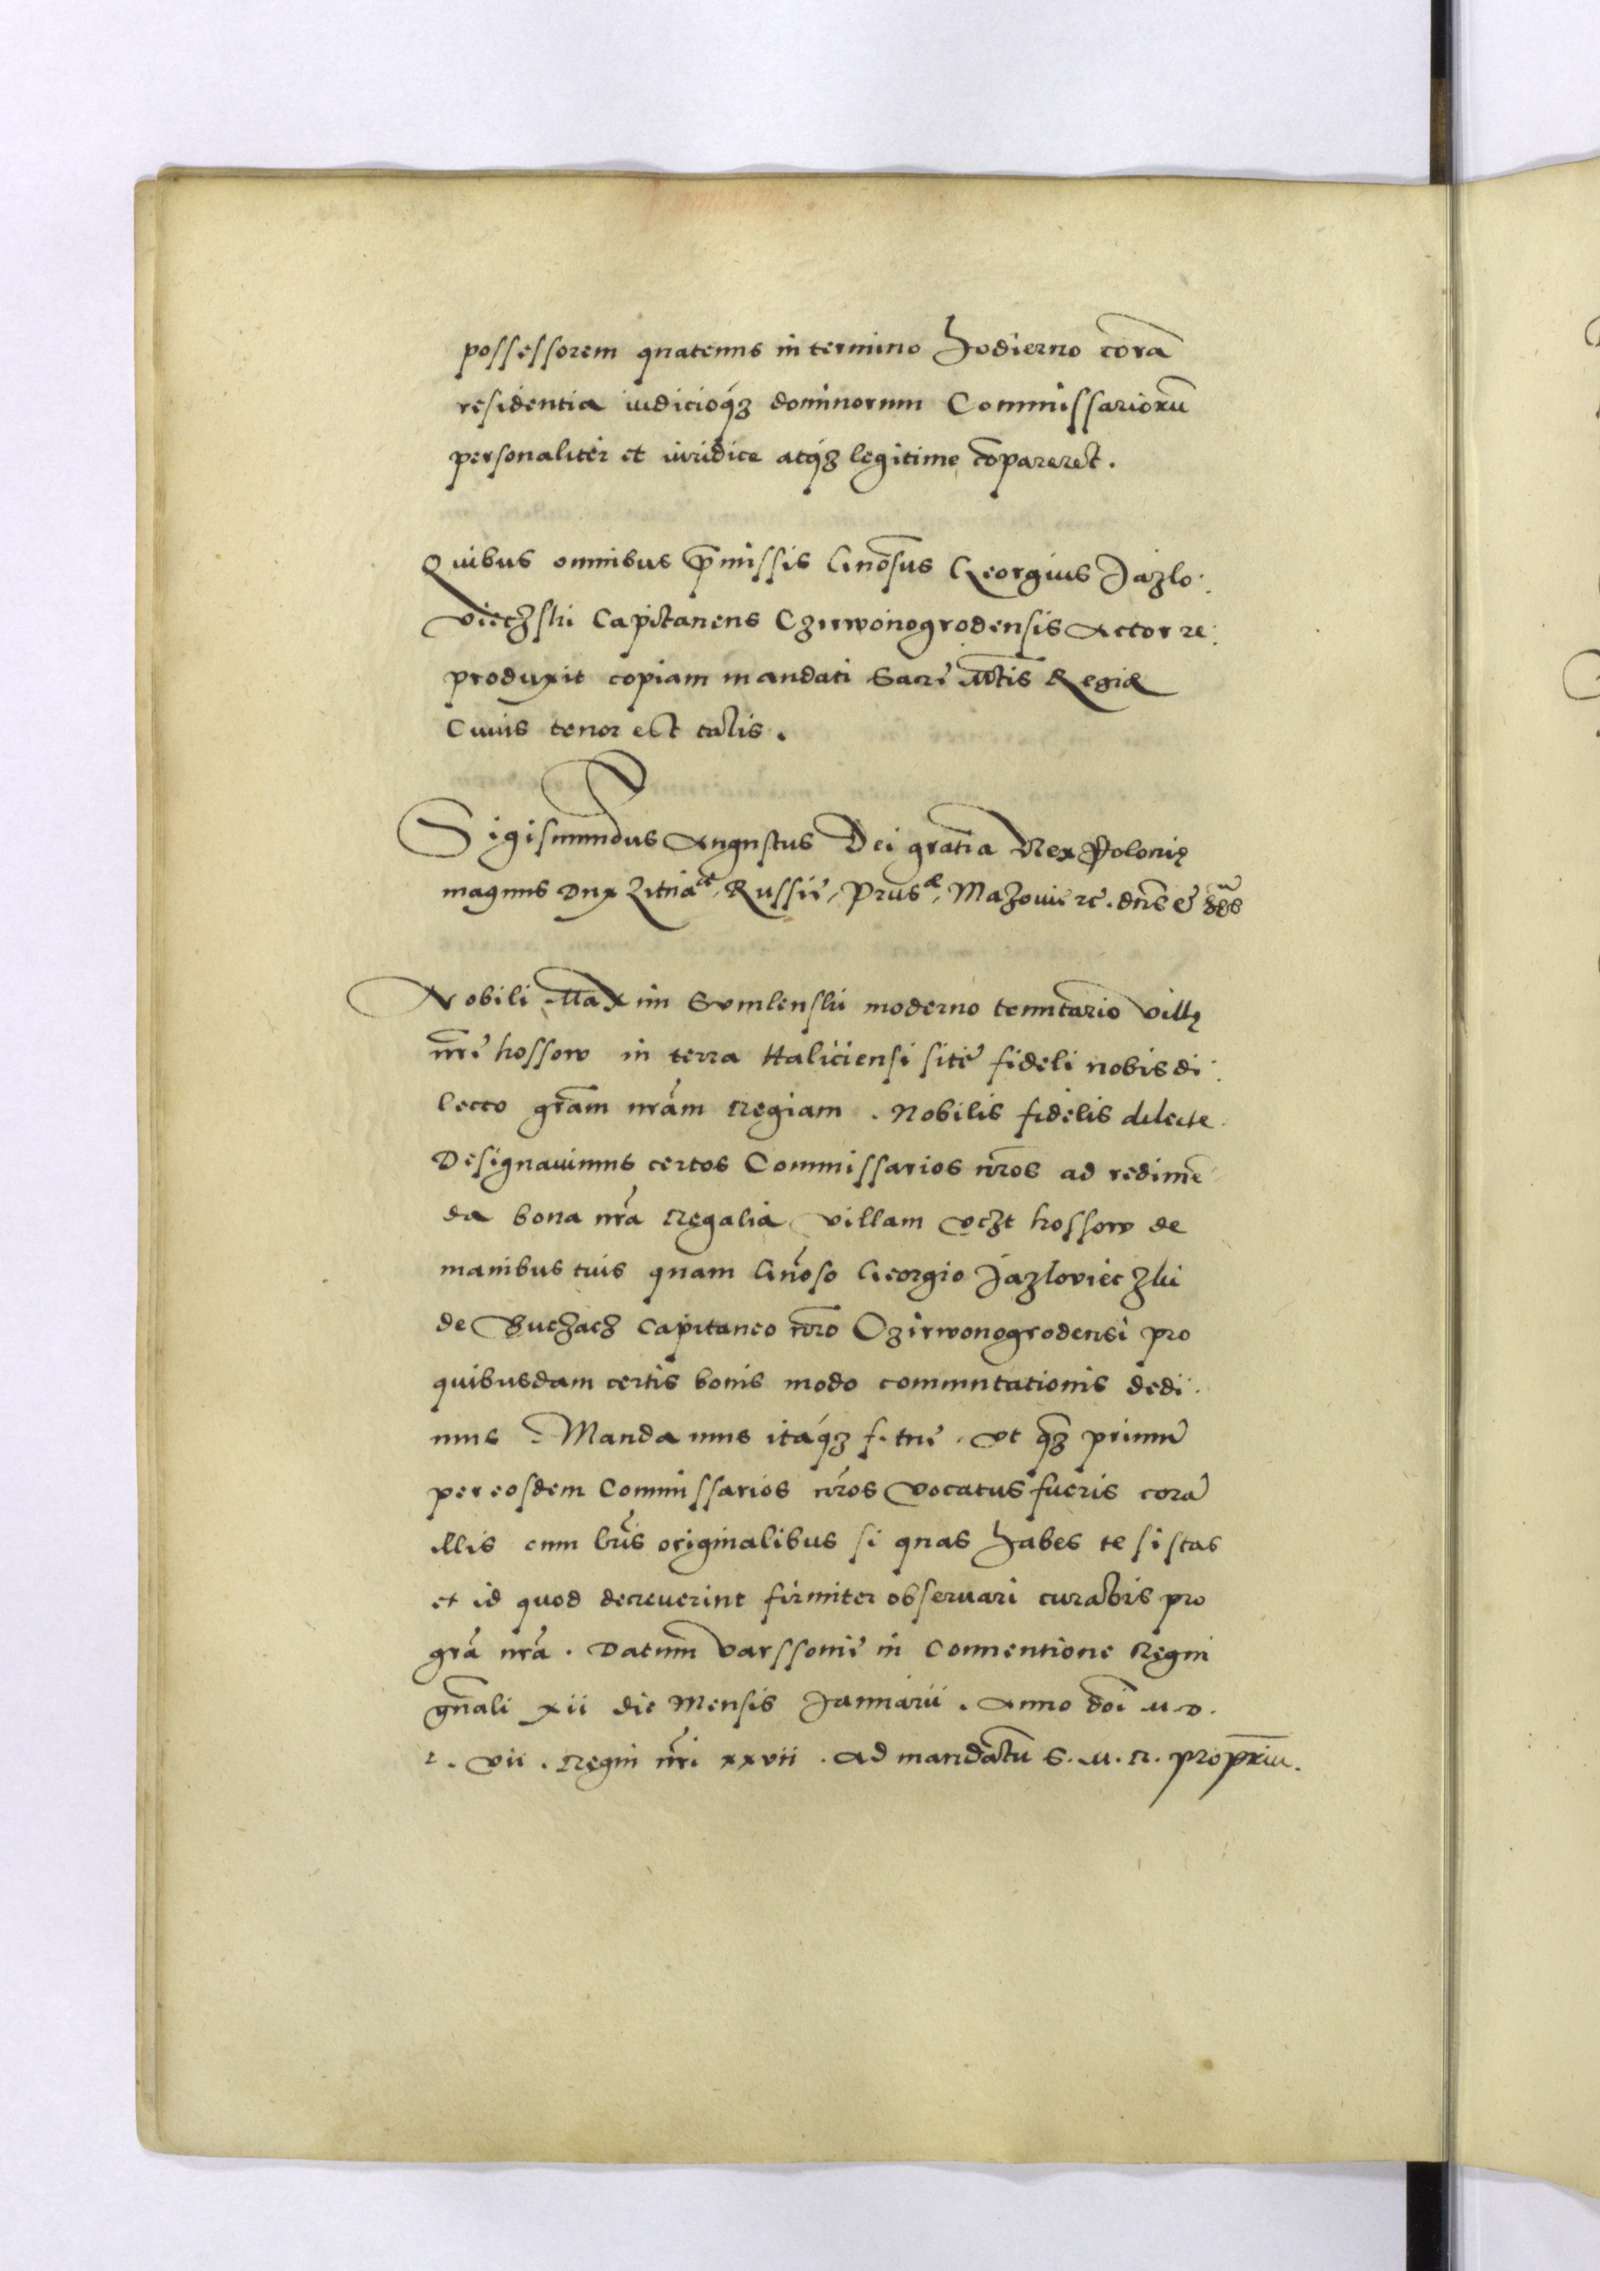 possessorem quatenus in termino hodierno corā
residentia iudicioq́ꝫ dominorum Commissariorū
personaliter et iuridice atq́ꝫ legitime cōpareret.
Quibus omnibus p̄missis Gnōsus Georgius Jazlo:
vieczski Capitaneus Czirwonogrodensis Actor re:
produxit copiam mandati Sacrę Mt̄is Regiæ
Cuius tenor est talis.
Sigismundus Augustus Dei grat̄ia Rex Polonię
magnus Dux Litua, Russię, Prus, Mazouię ꝛc. dn̄s et
Nobili Maxim Somlenski moderno tenutario villę
nr̄ę hossow in terra Haliciensi sitę fideli nobis di:
lecto gr̄am nr̄am Regiam. Nobilis fidelis dilecte.
Designauimus certos Commissarios nr̄os ad redimē
da bona nr̄a Regalia villam vczt hossow de
manibus tuis quam Gnōso Georgio Jazlovieczki
de Buczacz Capitaneo nr̄o Czirwonogrodensi pro
quibusdam certis bonis modo commutationis dedi:
mus. Mandamus itaq́ꝫ f. tuę. vt qꝫ primū
per eosdem Commissarios nr̄os vocatus fueris corā
illis cum lr̄is originalibus si quas habes te sistas
et id quod decreuerint firmiter obseruari curabis pro
gr̄a nr̄a. Datum Varssouię in Conuentione Regni
gn̄ali xii die Mensis Januarii. Anno dn̄i M.D.
L. vii. Regni nr̄i xxvii. Ad mandatū S. M. R. propriū.